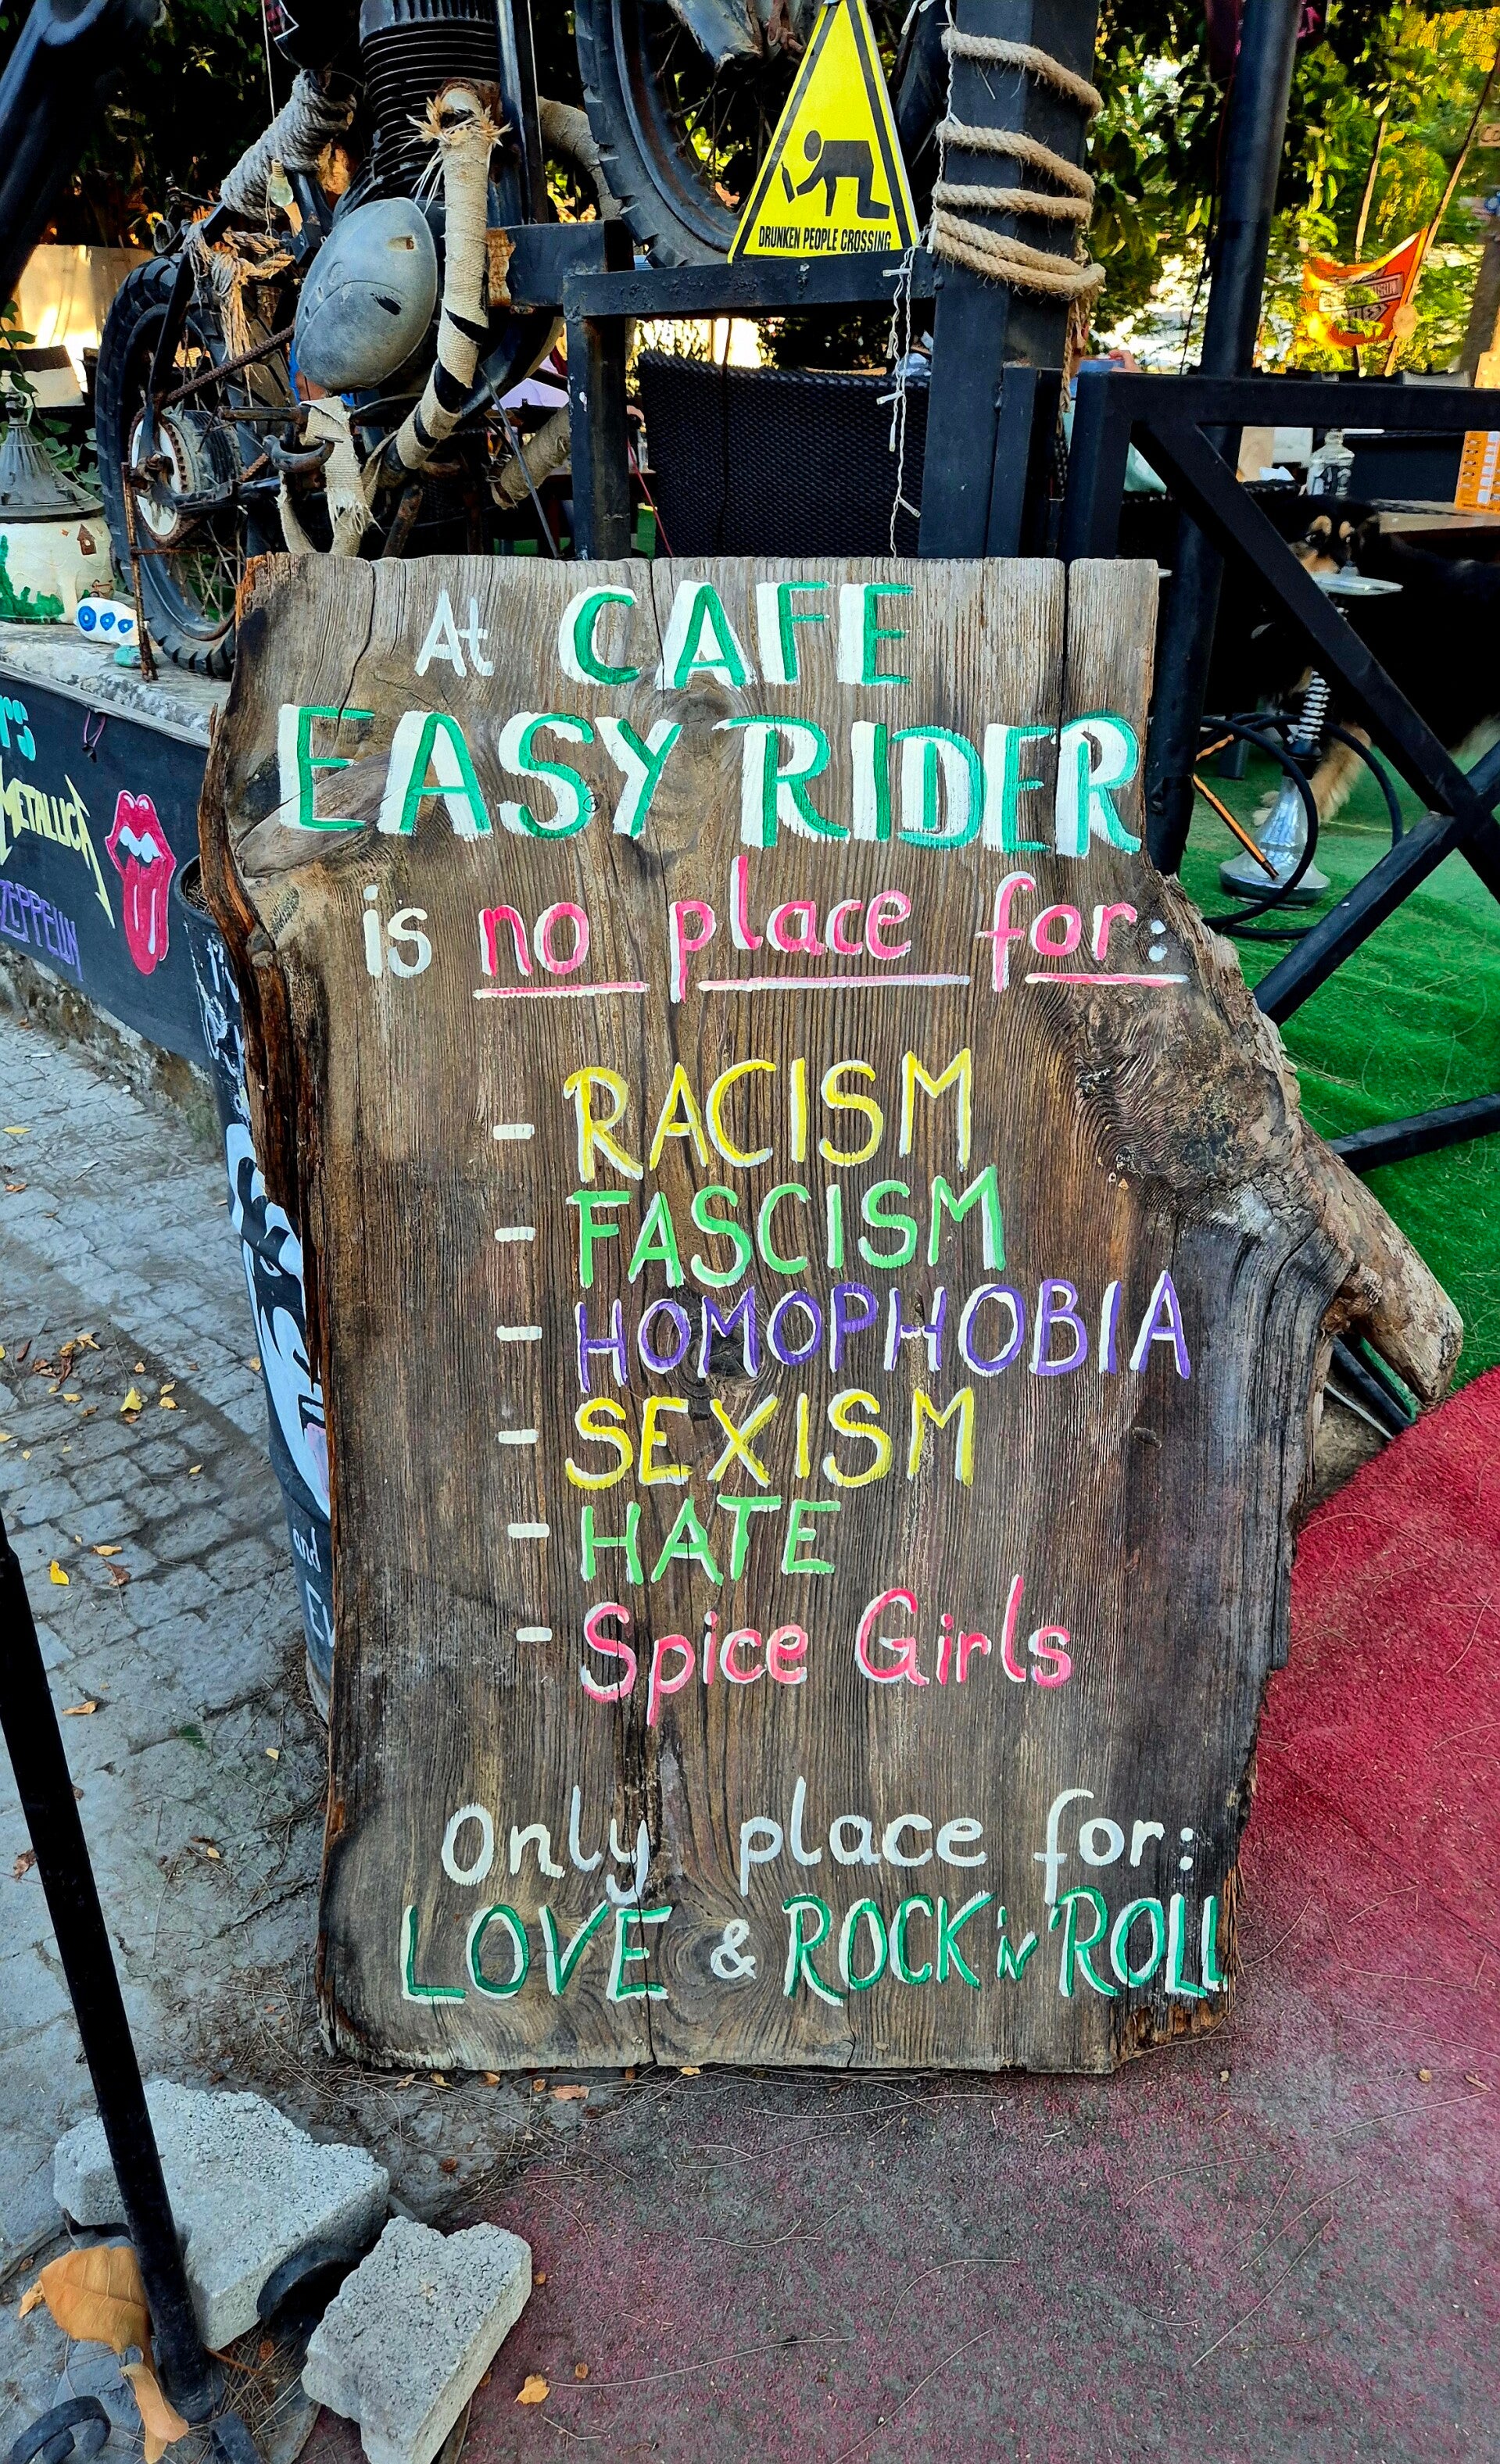 DRUNKEN PEOPLE CROSSING
At CAFE
EASY RIDER
is no place for:
- RACISM
- FASCISM
- HOMOPHOBIA
- SEXISM
- HATE
- Spice Girls
Only place for:
LOVE & ROCK 'N' ROLL
METALLICA
ZEPPELIN
and